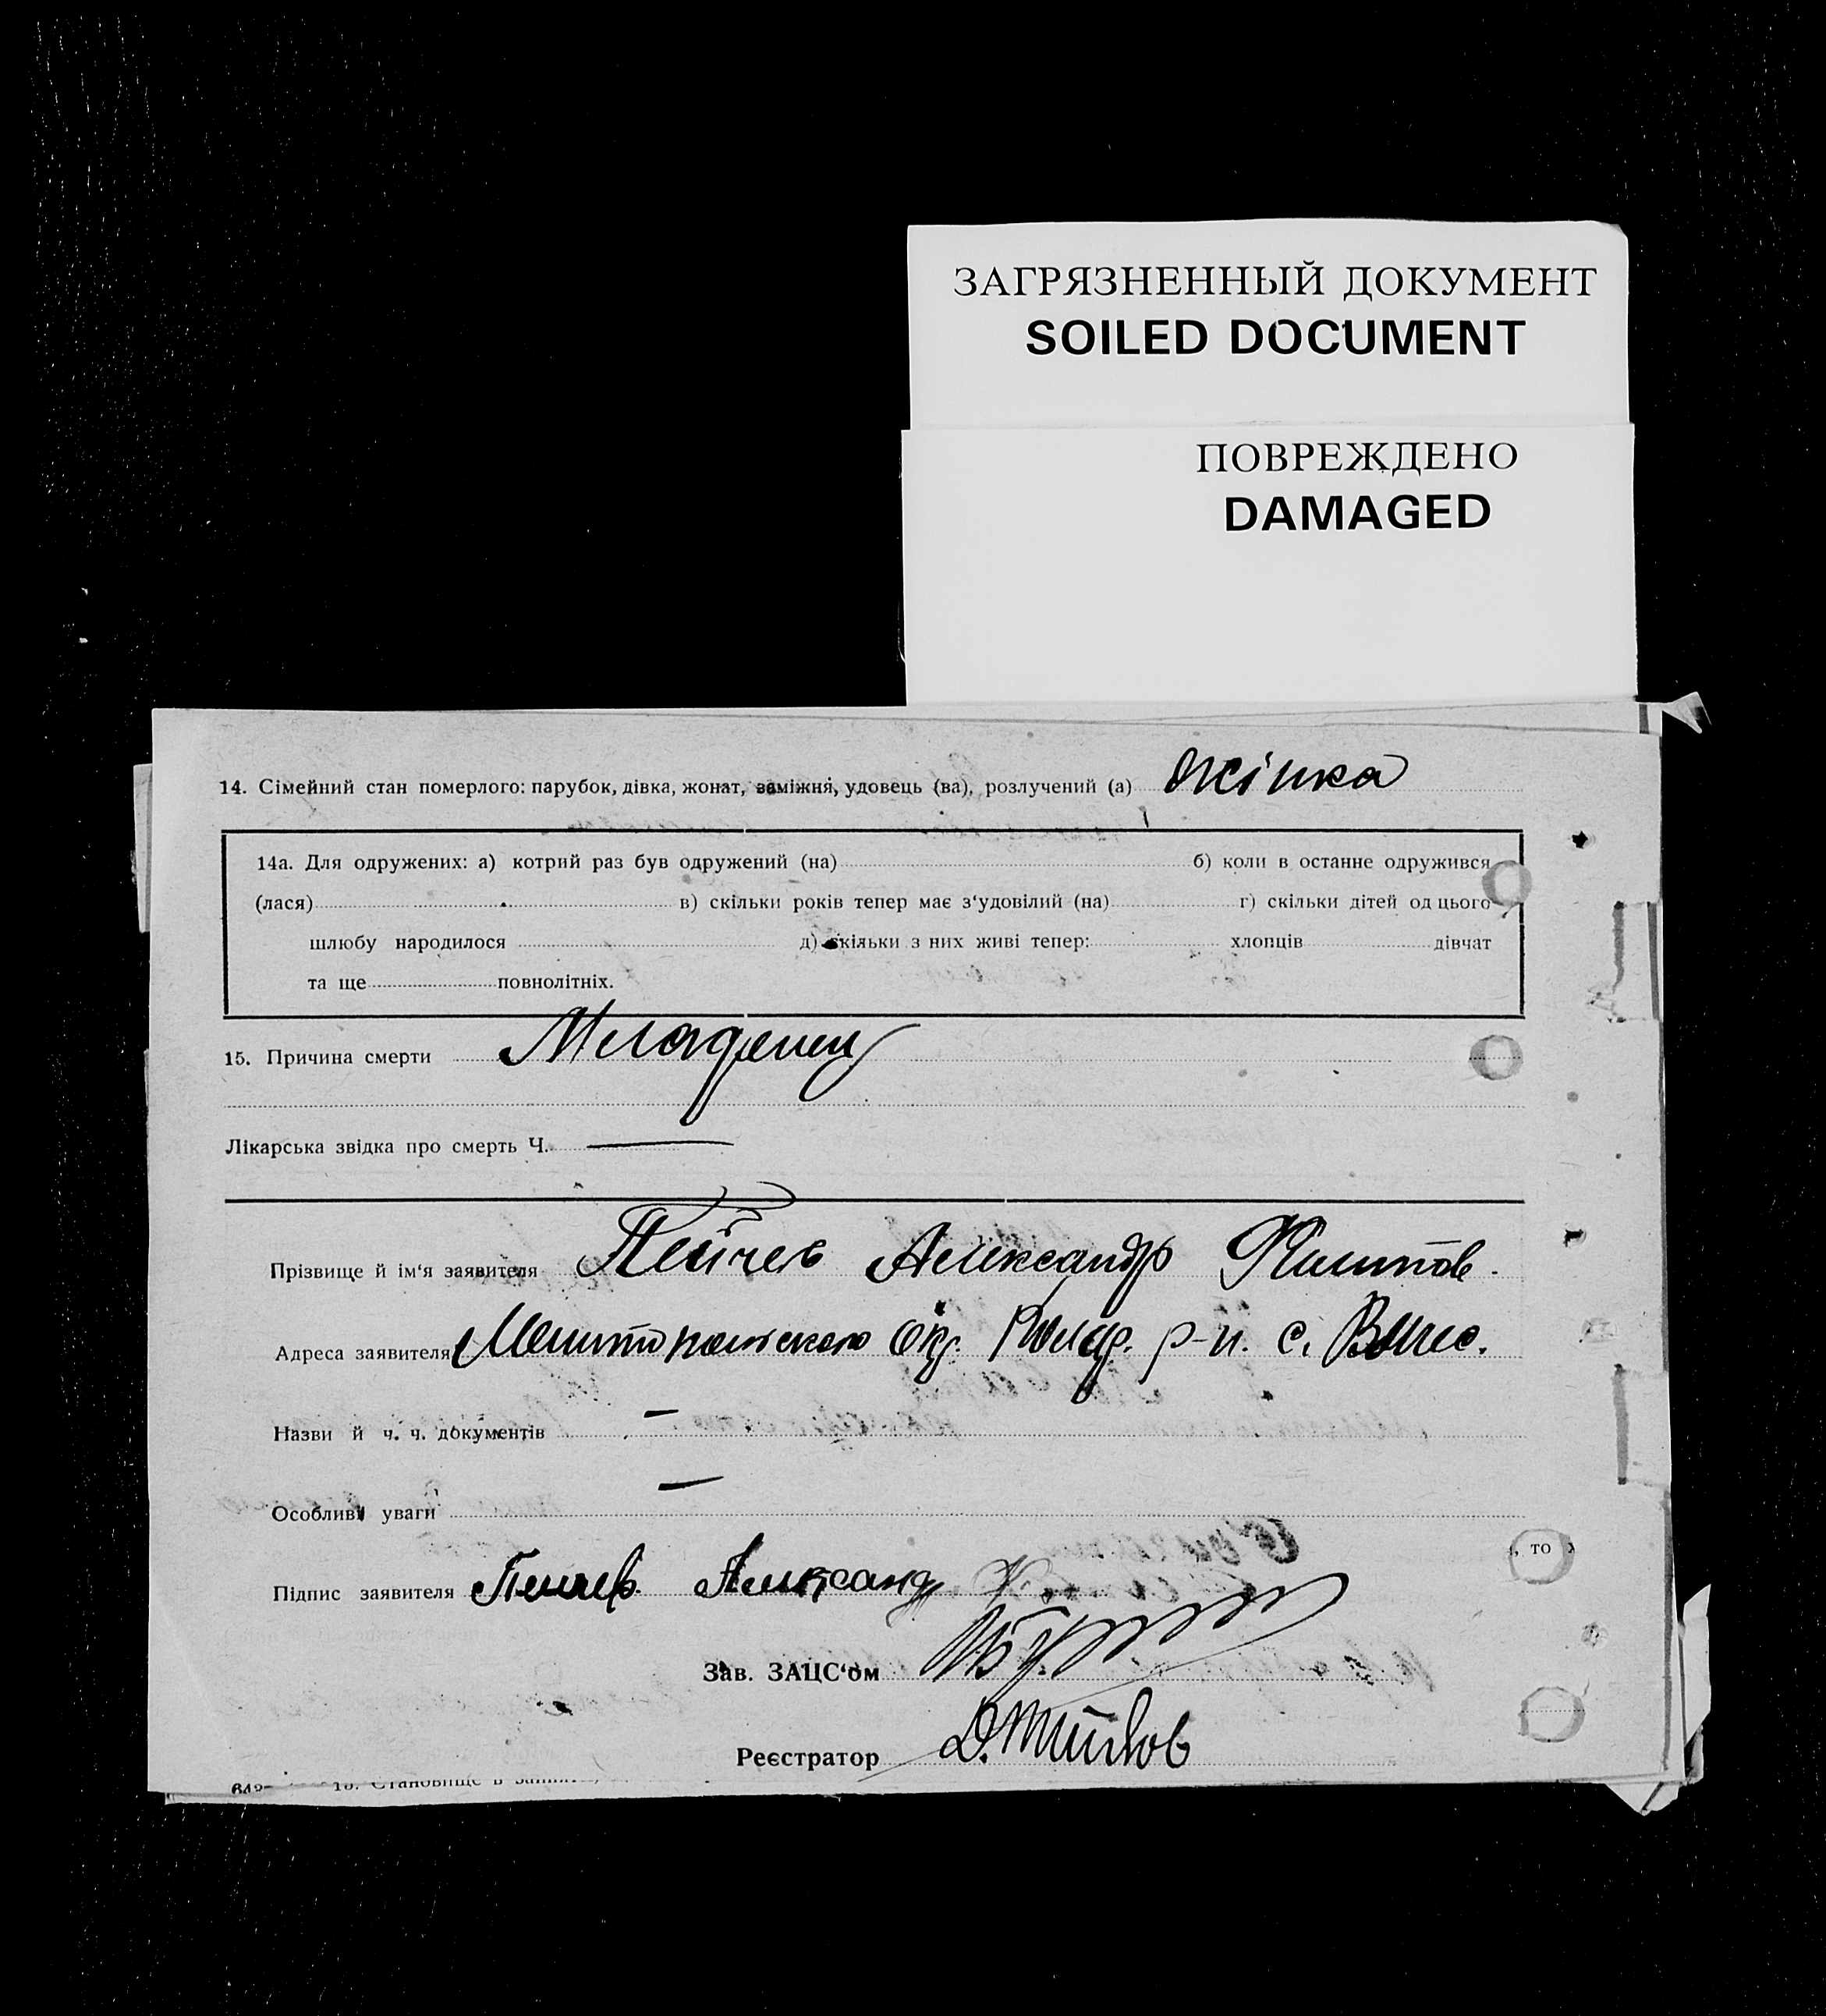 ЗАГРЯЗНЕННЫЙ ДОКУМЕНТ
SOILED DOCUMENT
ПОВРЕЖДЕНО
DAMAGED
14. Сімейний стан померлого: парубок, дівка, жонат, заміжня, удовець (ва), розлучений (а) жінка
14а. Для одружених: а) котрий раз був одружений (на) б) коли в останне одружився
(лася) в) скільки років тепер має з'удовілий (на) г) скільки дітей од цього
шлюбу народилося д) скільки з них живі тепер: хлопців дівчат
та ще повнолітніх.
15. Причина смерти Младенец
Лікарська звідка про смерть Ч. —
Прізвище й ім'я заявителя Пейчев Александр
Адреса заявителя Мелитопольского окр. р-н. с.
Назви й ч. ч. документів —
Особливі уваги —
Підпис заявителя Пейчев Александр
Зав. ЗАЦС'ом
Реєстратор